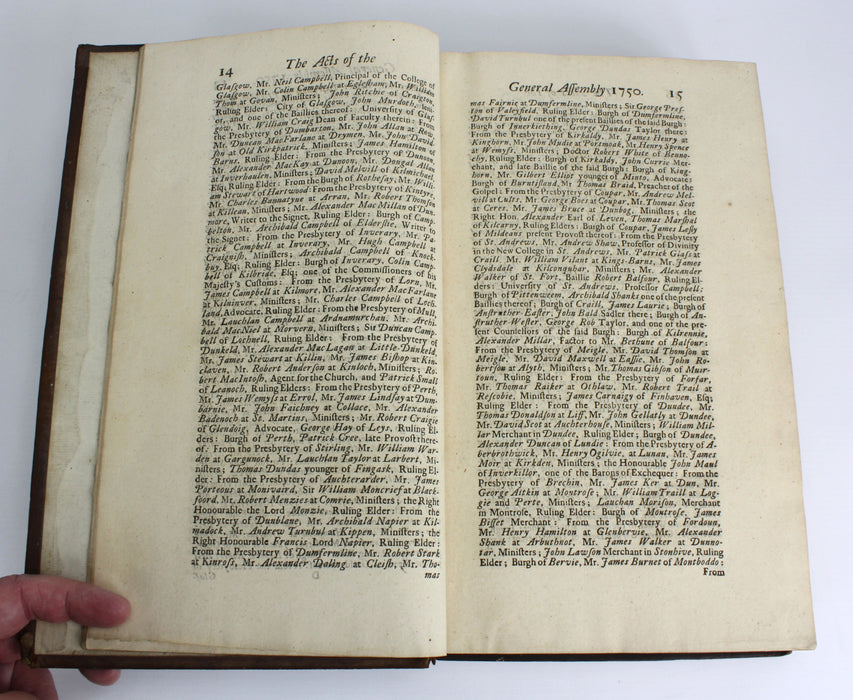 14 The Acts of the
Glasgow, Mr. Neil Campbell, Principal of the College of
Glasgow, Mr. Colin Campbell at Eglesham, Mr. William
Thom at Govan, Ministers; John Ritchie of Craigton,
Ruling Elder: City of Glasgow, John Murdoch, Seni-
or, and one of the Baillies thereof: University of Glas-
gow, Mr. William Craig Dean of Faculty therein: From
the Presbytery of Dumbarton, Mr. John Allan at Row,
Mr. Duncan MacFarlane at Drymen, Mr. John David-
son at Old Kirkpatrick, Ministers; James Hamilton of
Barns, Ruling Elder: From the Presbytery of Dunoon,
Mr. Alexander MacKay at Dunoon, Mr. Dougal Allan
at Inverhaulen, Ministers; David Melvill of Kilmichael
Esq; Ruling Elder: From the Burgh of Rothesay, Mr. Willi-
am Stewart of Hartwood: From the Presbytery of Kintyre,
Mr. Charles Bannatyne at Arran, Mr. Robert Thomson
at Killean, Ministers; Mr. Alexander MacMillan of Dun-
more, Writer to the Signet, Ruling Elder: Burgh of Camp-
belton, Mr. Archibald Campbell of Elderslie, Writer to
the Signet: From the Presbytery of Inverary, Mr. Pa-
trick Campbell at Inverary, Mr. Hugh Campbell at
Craignish, Ministers; Archibald Campbell of Knock-
buy, Esq; Ruling Elder: Burgh of Inverary, Colin Camp-
bell of Kilbriae, Esq; one of the Commissioners of his
Majesty's Customs: From the Presbytery of Lorn, Mr.
James Campbell at Kilmore, Mr. Alexander MacFarlane
at Kilninver, Ministers; Mr. Charles Campbell of Loch-
land, Advocate, Ruling Elder: From the Presbytery of Mull,
Mr. Lauchlan Campbell at Ardnamurchan, Mr. Archi-
bald MacNiel at Morvern, Ministers; Sir Duncan Camp-
bell of Lochnell, Ruling Elder: From the Presbytery of
Dunkeld, Mr. Alexander MacLagan at Little-Dunkeld,
Mr. James Stewart at Killin, Mr. James Bishop at Kin-
claven, Mr. Robert Anderson at Kinloch, Ministers; Ro-
bert MacIntosh, Agent for the Church, and Patrick Small
of Leanoch, Ruling Elders: From the Presbytery of Perth,
Mr. James Wemyss at Errol, Mr. James Lindsay at Dum-
barnie, Mr. John Faichney at Collace, Mr. Alexander
Badenoch at St. Martins, Ministers; Mr. Robert Craigie
of Glendoig, Advocate, George Hay of Leys, Ruling El-
ders: Burgh of Perth, Patrick Cree, late Provost there-
of: From the Presbytery of Stirling, Mr. William War-
den at Gargunock, Mr. Lauchlan Taylor at Larbert, Mi-
nisters; Thomas Dundas younger of Fingask, Ruling El-
der: From the Presbytery of Auchterarder, Mr. James
Porteous at Monivaird, Sir William Moncrief at Black-
foord, Mr. Robert Menzies at Comrie, Ministers; the Right
Honourable the Lord Monzie, Ruling Elder: From the
Presbytery of Dunblane, Mr. Archibald Napier at Kil-
madock, Mr. Andrew Turnbul at Kippen, Ministers; the
Right Honourable Francis Lord Napier, Ruling Elder:
From the Presbytery of Dumfermline, Mr. Robert Stark
at Kinross, Mr. Alexander Daling at Cleish, Mr. Tho-
mas
General Assembly 1750. 15
mas Fairnie at Dumfermline, Ministers; Sir George Pres-
ton of Valeyfield, Ruling Elder: Burgh of Dumfermline,
David Turnbul one of the present Baillies of the said Burgh:
Burgh of Innerkeithing, George Dundas Taylor there:
From the Presbytery of Kirkaldy, Mr. James Henry at
Kinghorn, Mr. John Mudie at Portsmoak, Mr. Henry Spence
at Wemyss, Ministers; Doctor Robert White of Benno-
chy, Ruling Elder: Burgh of Kirkaldy, John Currie Mer-
chant, and late Baillie of the said Burgh: Burgh of King-
horn, Mr. Gilbert Elliot younger of Minto, Advocate:
Burgh of Burntisland, Mr. Thomas Braid, Preacher of the
Gospel: From the Presbytery of Coupar, Mr. Andrew Mel-
vill at Cults, Mr. George Boes at Coupar, Mr. Thomas Scot
at Ceres, Mr. James Bruce at Dunbog, Ministers; the
Right Hon. Alexander Earl of Leven, Thomas Marshal
of Kilcarny, Ruling Elders: Burgh of Coupar, James Lessly
of Mildeans present Provost thereof: From the Presbytery
of St. Andrews, Mr. Andrew Shaw, Professor of Divinity
in the New College in St. Andrews, Mr. Patrick Glass at
Craill, Mr. William Vilant at Kings-Barns, Mr. James
Clydsdale at Kilconquhar, Ministers; Mr. Alexander
Walker of St. Fort, Baillie Robert Balfour, Ruling El-
ders: University of St. Andrews, Professor Campbell:
Burgh of Pittenweem, Archibald Shanks one of the present
Baillies thereof; Burgh of Craill, James Laurie; Burgh of
Anstruther-Easter, John Bald Sadler there; Burgh of An-
struther-Wester, George Rob Taylor, and one of the pre-
sent Counsellors of the said Burgh: Burgh of Kilrennie,
Alexander Millar, Factor to Mr. Bethune of Balfour:
From the Presbytery of Meigle, Mr. David Thomson at
Meigle, Mr. David Maxwell at Eassie, Mr. John Ro-
bertson at Alyth, Ministers; Mr. Thomas Gibson of Muir-
toun, Ruling Elder: From the Presbytery of Forfar,
Mr. Thomas Raiker at Othlaw, Mr. Robert Trail at
Rescobie, Ministers; James Carnaigy of Finhaven, Esq;
Ruling Elder: From the Presbytery of Dundee, Mr.
Thomas Donaldson at Liff, Mr. John Gellatly at Dundee,
Mr. David Scot at Auchterhouse, Ministers; William Mil-
lar Merchant in Dundee, Ruling Elder; Burgh of Dundee,
Alexander Duncan of Lundie: From the Presbytery of A-
berbrothwick, Mr. Henry Ogilvie, at Lunan, Mr. James
Moir at Kirkden, Ministers; the Honourable John Maul
of Inverkillor, one of the Barons of Exchequer: From the
Presbytery of Brechin, Mr. James Ker at Dun, Mr.
George Aitkin at Montrose, Mr. William Traill at Log-
gie and Perte, Ministers; Lauchan Morison, Merchant
in Montrose, Ruling Elder: Burgh of Montrose, James
Bisset Merchant: From the Presbytery of Fordoun,
Mr. Henry Hamilton at Glenbervie, Mr. Alexander
Shank at Arbuthnot, Mr. James Walker at Dunno-
tar, Ministers; John Lawson Merchant in Stonhive, Ruling
Elder; Burgh of Bervie, Mr. James Burnet of Montboddo:
From